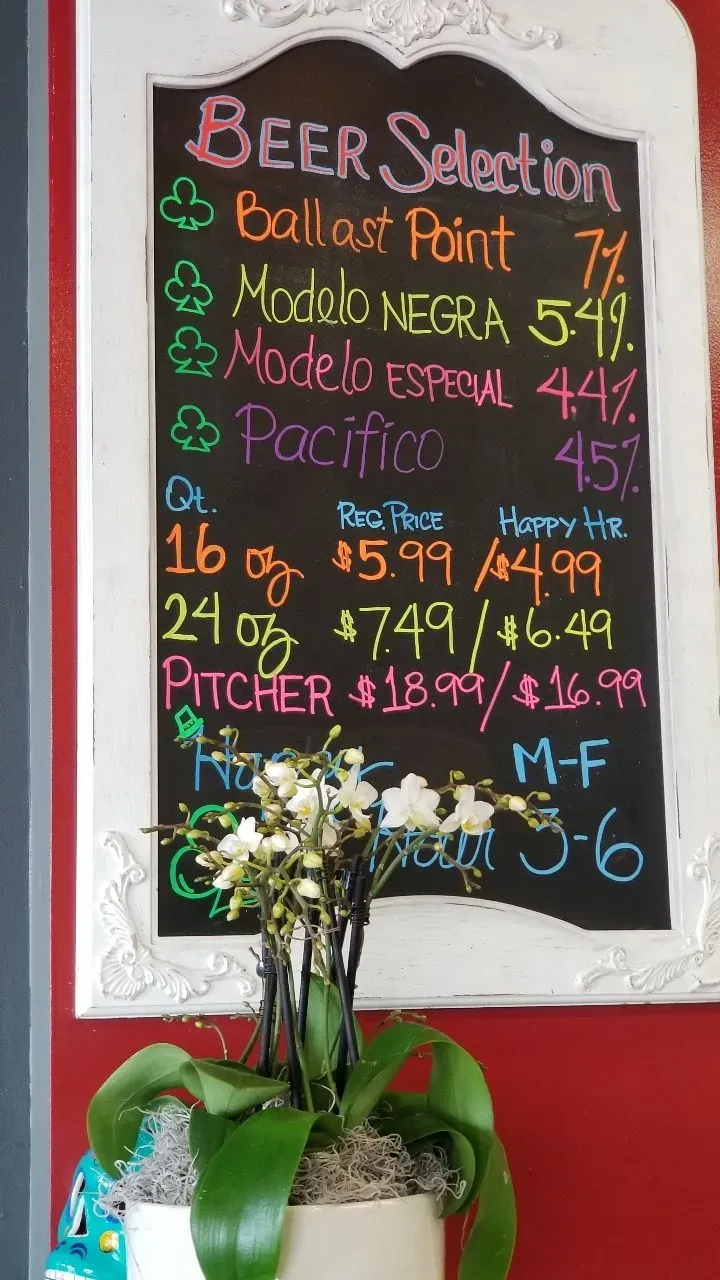 BEER Selection
Ballast Point 7%
Modelo NEGRA 5.4%
Modelo ESPECIAL 4.4%
Pacifico 4.5%
Qt. REG. PRICE HAPPY HR.
16 oz $5.99 / $4.99
24 oz $7.49 / $6.49
PITCHER $18.99 / $16.99
M-F
Hour 3-6